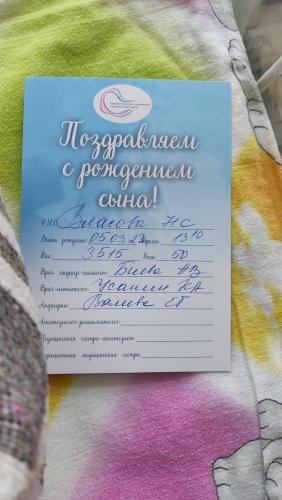 Поздравляем
с рождением
сына!
Ф.И.О. Власова НС
Дата рождения 05.03.23 Время 13 10
Вес 3515 Рост 50
Врач акушер-гинеколог Биева
Врач-неонатолог
Акушерка Валиева
Анестезиолог-реаниматолог
Медицинская сестра-анестезист
Операционная медицинская сестра